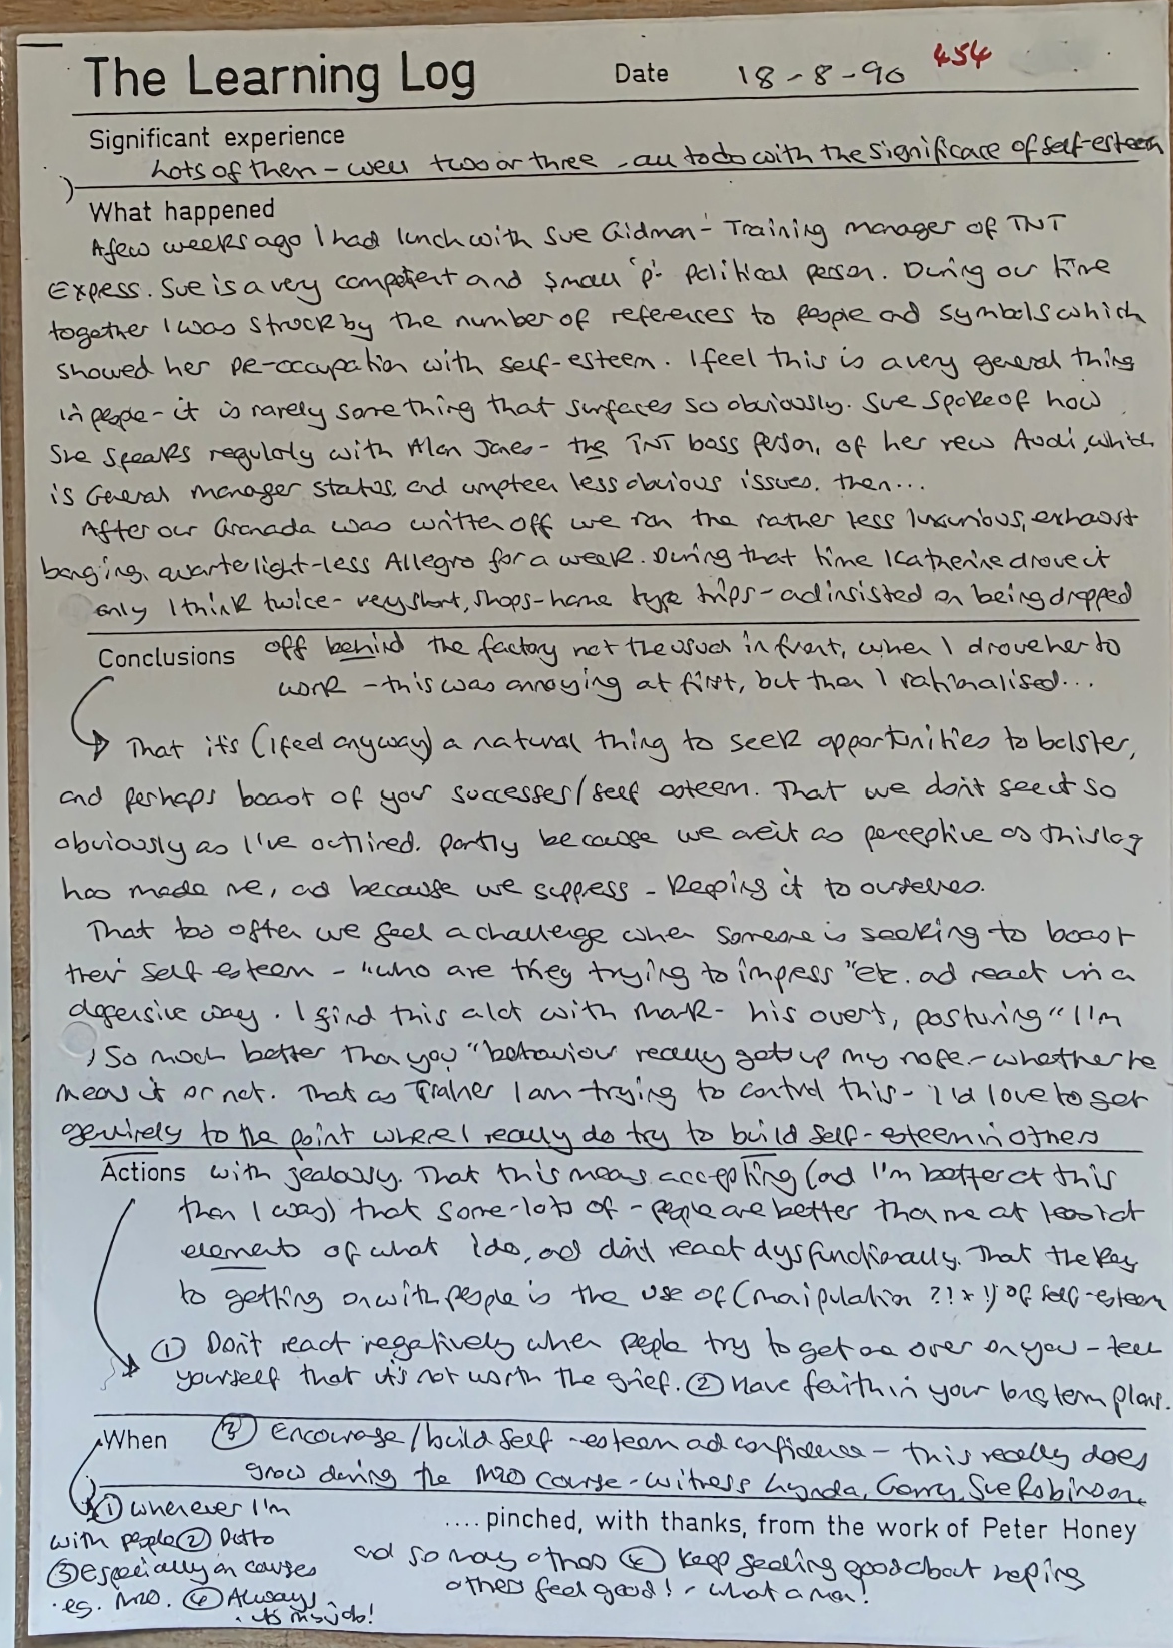 The Learning Log Date 18-8-90 454
Significant experience
Lots of them - well two or three - all to do with the significace of self-esteem
What happened
A few weeks ago I had lunch with Sue Gidman - Training manager of TNT
Express. Sue is a very competent and small 'p' - political person. During our time
together I was struck by the number of references to people and symbols which
showed her pre-occupation with self-esteem. I feel this is a very general thing
in people - it is rarely something that surfaces so obviously. Sue spoke of how
she speaks regularly with Alan Jones - the TNT boss person, of her new Audi, which
is General manager status, and umpteen less obvious issues. then...
After our Granada was written off we ran the rather less luxurious, exhaust
banging, quarterlight-less Allegro for a week. During that time Katherine drove it
only I think twice - very short, shops-home type trips - and insisted on being dropped
Conclusions off behind the factory not the usual in front, when I drove her to
work - this was annoying at first, but then I rationalised...
That it's (I feel anyway) a natural thing to seek opportunities to bolster,
and perhaps boast of your successes/self esteem. That we don't see it so
obviously as I've outlined. partly because we aren't as perceptive as this log
has made me, and because we suppress - keeping it to ourselves.
That too often we feel a challenge when someone is seeking to boast
their self esteem - "who are they trying to impress" etc. and react in a
defensive way. I find this a lot with Mark - his overt, posturing "I'm
so much better than you" behaviour really gets up my nose - whether he
means it or not. That as Trainer I am trying to control this - I'd love to get
genuinely to the point where I really do try to build self-esteem in others
Actions with jealousy. That this means accepting (and I'm better at this
than I was) that some - lots of - people are better than me at least at
elements of what I do, and don't react dysfunctionally. That the key
to getting on with people is the use of (manipulation ?!*!) of self-esteem
① Don't react negatively when people try to get one over on you - tell
yourself that it's not worth the grief. ② Have faith in your long term plans.
When ③ Encourage/build self-esteem and confidence - this really does
grow during the M20 course - witness Lynda, Garry, Sue Robinson,
① whenever I'm
with people ② Ditto
③ especially on courses
eg. M20. ④ Always
- it's my job!
.... pinched, with thanks, from the work of Peter Honey
and so many others ④ Keep feeling good about helping
others feel good! - what a man!